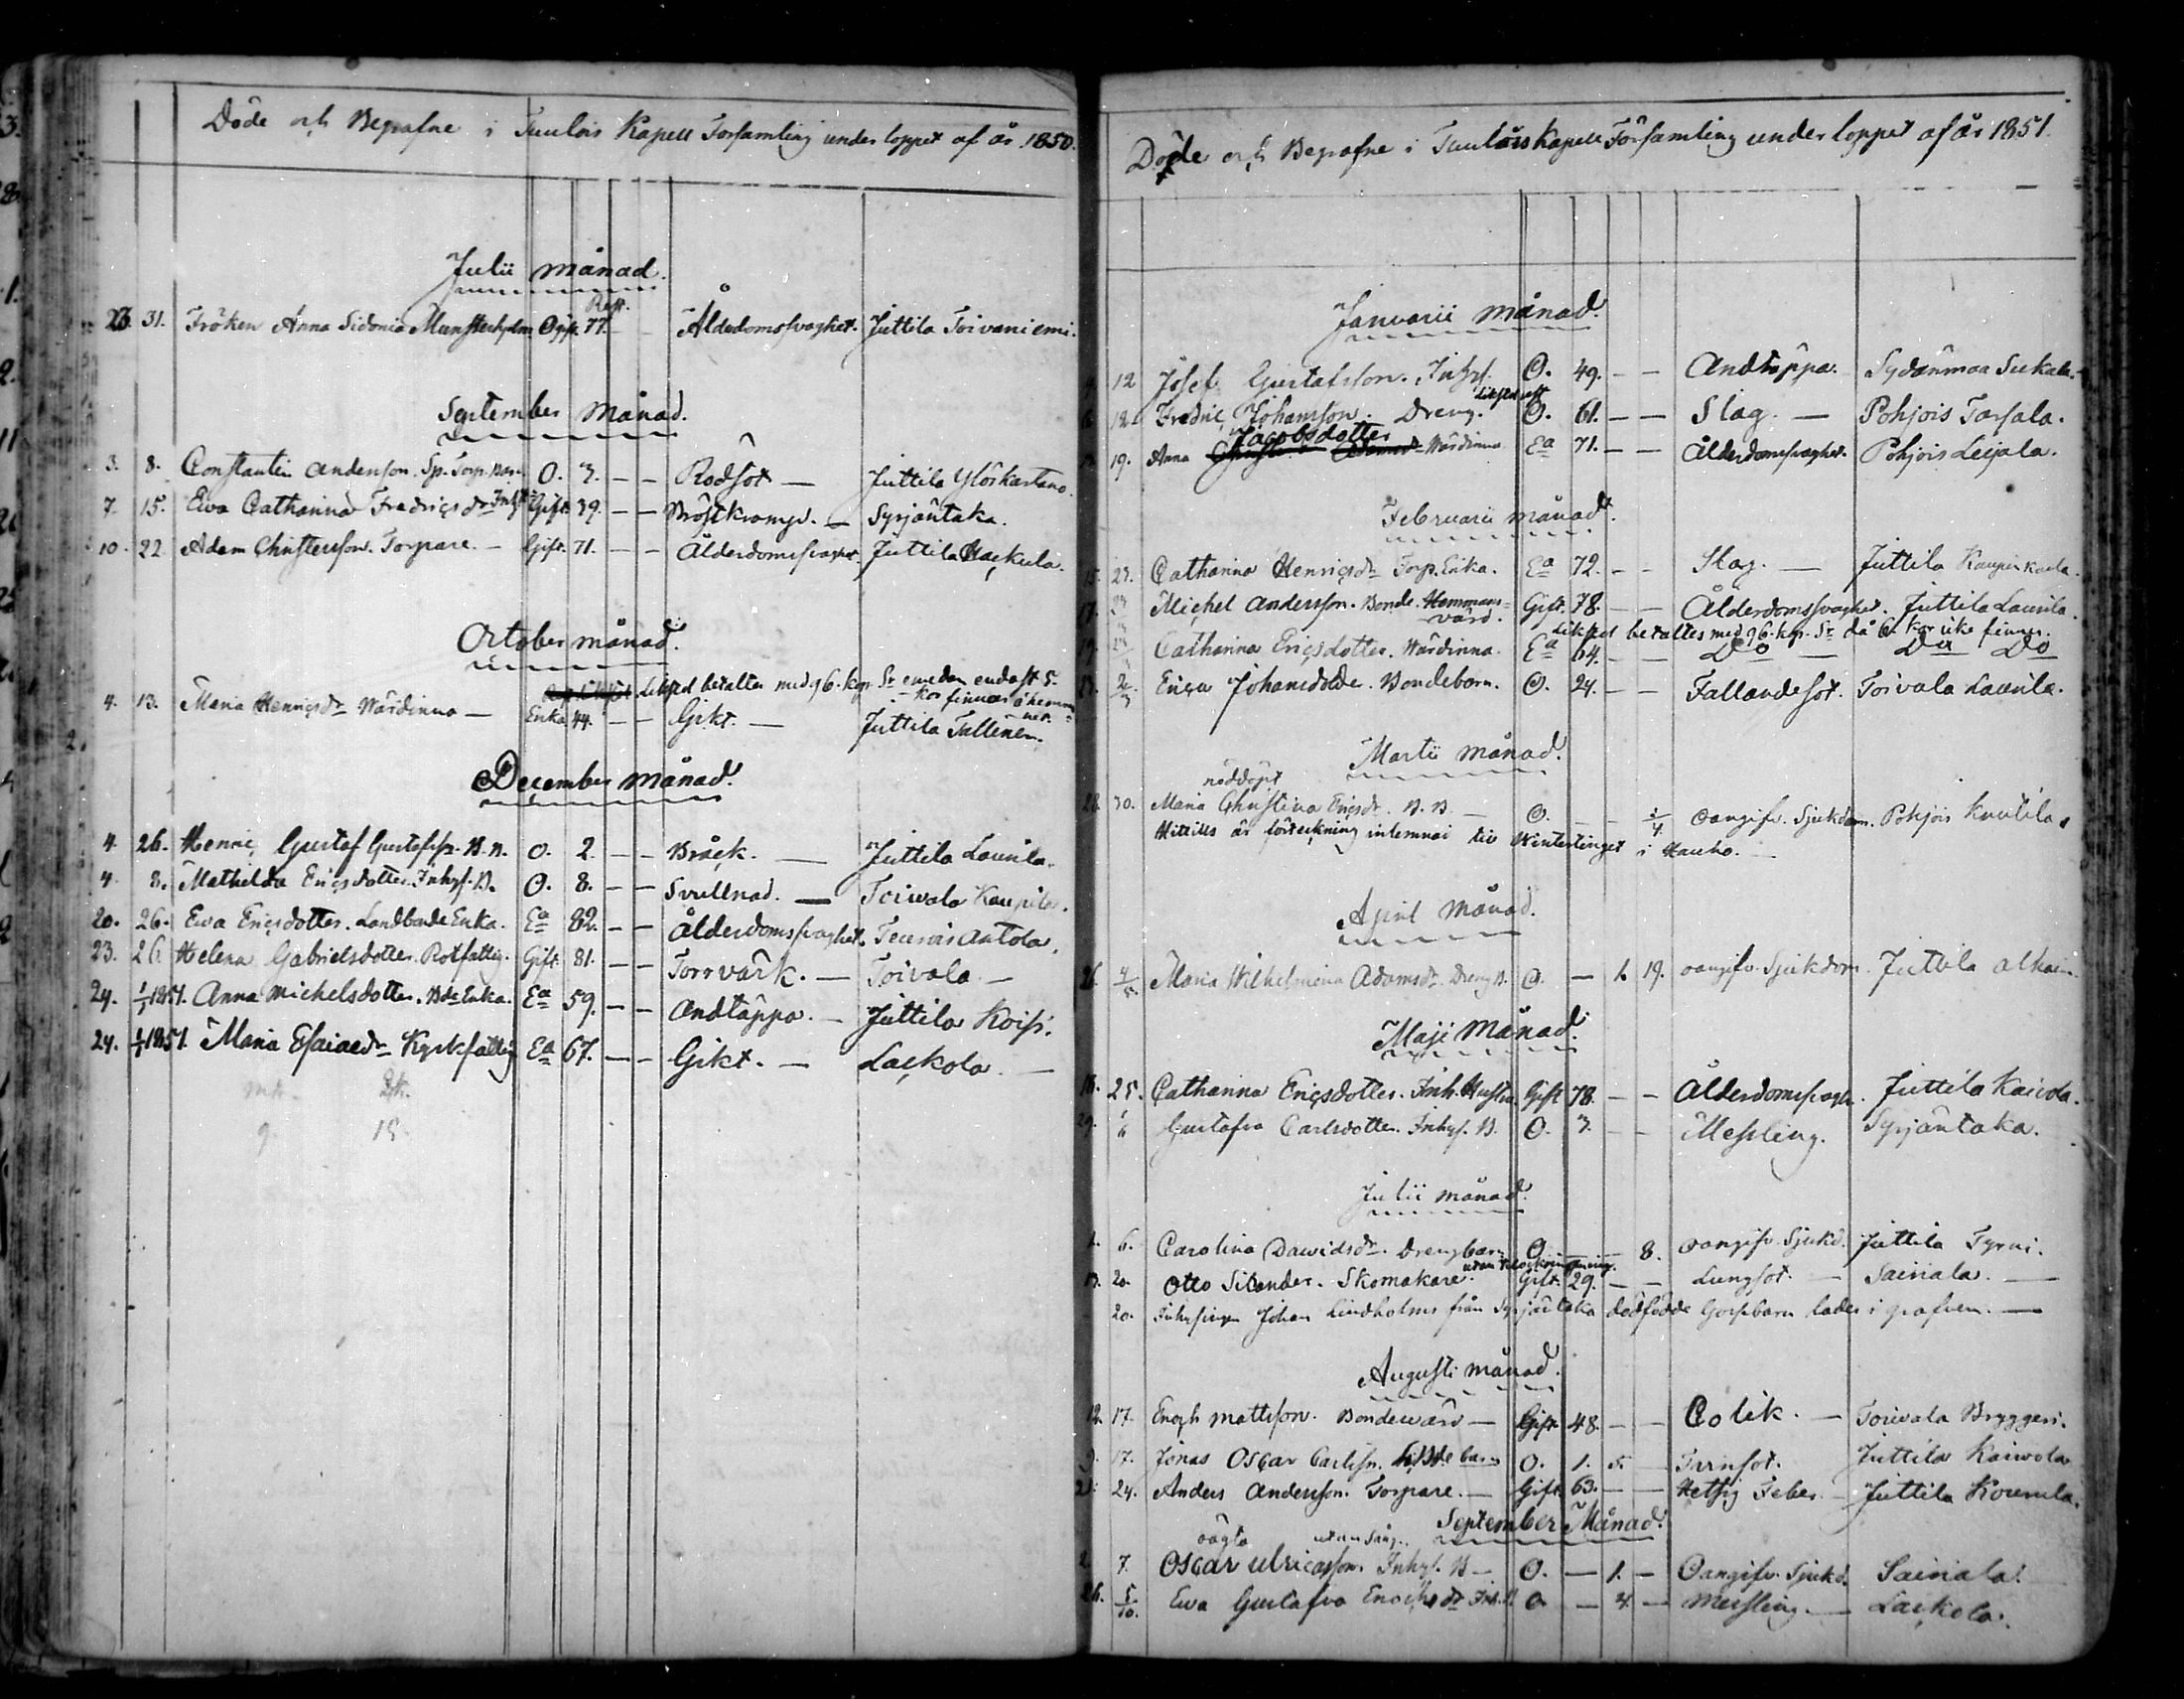 Döde och Begrafne i Tuulois Kapell Församling under loppet af år 1850.
Julii månad.
23. 31. Fröken Anna Sidonia Munsterhjelm Ogift. 77. — Ålderdomssvaghet. Juttila Toivaniemi.
September Månad.
3. 8. Constantin Anderson. Sp. Torp. O. 3. — — Rödsot — Juttila Ylöskartano.
7. 15. Ewa Catharina Fredricsdr Inhs Gift. 39. — — Bröstkramp. — Syrjäntaka.
10. 22. Adam Christersson. Torpare. — Gift. 71. — — Ålderdomssvaghet. Juttila Hackula.
October månad.
Likstol betaltes med 96. kop. Sr emedan endast 5.
kor finnas å hemma-
net.
4. 13. Maria Henricsdr Wärdinna — Enka 44. — — Gikt. — Juttila Tallinen.
December månad.
4. 26. Henric Gustaf Gustafss. B. B. O. 2. — — Bråck. — Juttila Laurila.
4. 8. Mathilda Ericsdotter. Inhys. B. O. 8. — — Svullnad. — Toiwala Kaupila.
20. 26. Ewa Ericsdotter. Landbonde Enka. Ea 82. — — Ålderdomssvaghet. Teurois Antola.
23. 26. Helena Gabrielsdotter. Rotfattig. Gift. 81. — — Torrvärk. — Toivala —
24. 1/1 1851. Anna Michelsdotter. Bde Enka. Ea 59. — — Andtäppa. — Juttila Koiss.
24. 1/1 1851. Maria Esaiaedr Kyrkfattig Ea 67. — — Gikt. — Lackola. —
9. 15.
Döde och Begrafne i Tuulois Kapell Församling under loppet af år 1851.
Januarii månad.
12 Josef Gustafsson. Inhys. O. 49. — — Andtäppa. Sydänmaa Sukala.
12. Fredric Johansson. Dreng. O. 61. — — Slag. — Pohjois Tarsala.
Jacobsdotter
19. Anna Wärdinna Ea 71. — — Ålderdomssvaghet. Pohjois Leijala.
Februarii månad.
15. 23. Catharina Henricsdr Torp. Enka. Ea 72. — — Slag. — Juttila
17. Michel Andersson. Bonde. Hemmans-
värd. Gift. 78. — — Ålderdomssvaghet. Juttila Laurila.
Likstol betaltes med 96. kop. Sr då 6. kor icke finnes.
Catharina Ericsdotter. Wärdinna. Ea 64. — — Do — Do Do
Erica Johansdotter. Bondebarn. O. 24. — — Fallandesot. Toivala Laurila.
Martii månad.
nöddöpt
28. 30. Maria Christina Ericsdr. B. B. — O. — — 1/4 oangifv. Sjukdom. Pohjois Knutila.
Hittills är förteckning inlemnad till Wintertinget i Hauho. —
April månad.
26. 4/5. Maria Wilhelmina Adamsdr. Dreng B. O. — 1. 19. oangifv. Sjukdom. Juttila
Maji månad.
18. 25. Catharina Ericsdotter. Inh. Hustru. Gift 78. — — Ålderdomssvagh. Juttila Kaivola.
29. 1/6 Gustafva Carlsdotter. Inhys. B. O. 3. — — Messling. Syrjäntaka.
Julii månad.
6. Carolina Dawidsdr. Drengbarn O. — — 8. oangifv. Sjukd. Juttila Tyrni.
utan klockringning.
13. 20. Otto Silander. Skomakare. Gift. 29. — — Lungsot. — Sairiala. —
20. Inhysingen Johan Lindholms från Syrjäntaka dödfödde Gossebarn lades i grafven. —
Augusti månad.
12. 17. Enoch Mattsson. Bondewärd — Gift 48. — — Colik. — Toiwala Bryggeri.
9. 17. Jonas Oscar Carlsson. barn O. 1. 5. — Juttila Kaiwola
21. 24. Anders Andersson. Torpare. — Gift. 63. — — Hetsig Feber. — Juttila Kourula.
September Månad.
oägta utan sång.
2. 7. Oscar Ulricasson. Inhys. B — O. — 1. — Oangifv. Sjukd. Sairiala.
26. 5/10. Ewa Gustafva Enochsdr Inh. B O — 4. — Messling. — Lackola.